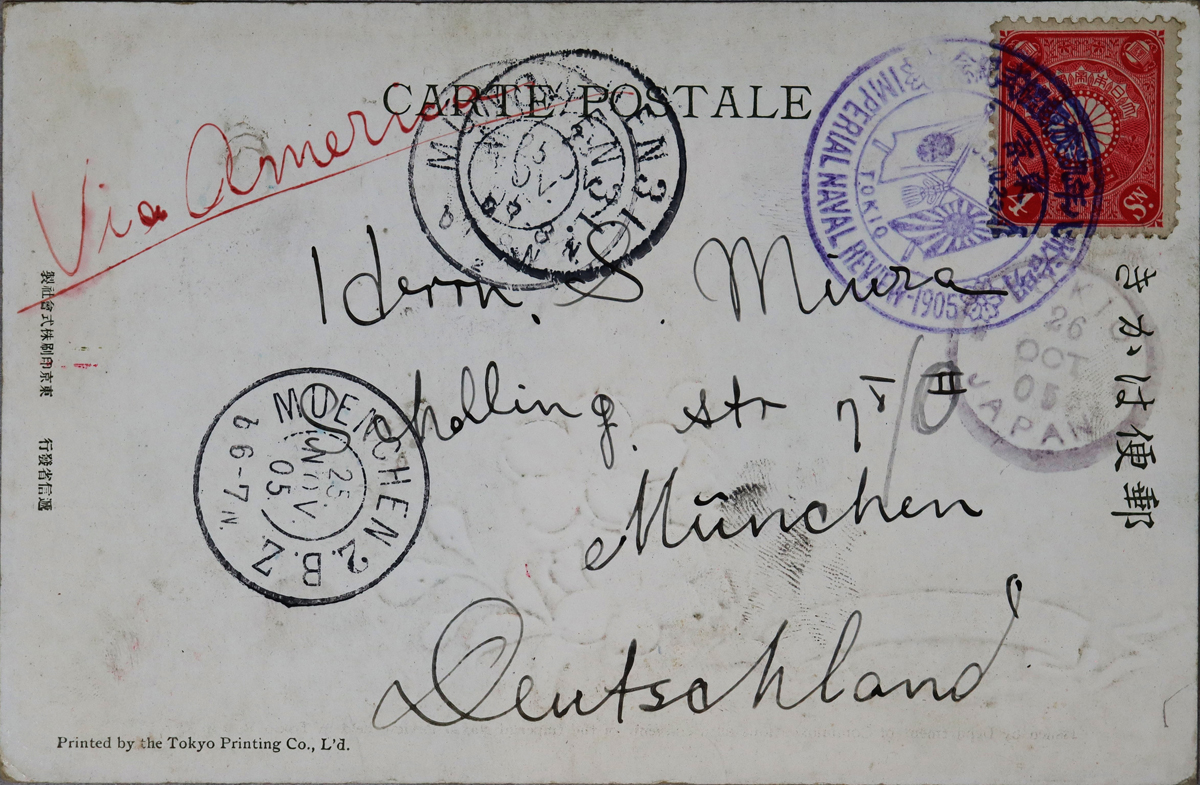 CARTE POSTALE
Via America
IMPERIAL NAVAL REVIEW-1905
TOKIO
4 Sn.
26
OCT
05
JAPAN
きかは便郵
Herrn. S. Miura
Schelling str
München
Deutschland
MUENCHEN 2.B.Z.
25
NOV
05
6-7 N
MUENCHEN 31
NOV
東京印刷株式會社製
逓信省發行
Printed by the Tokyo Printing Co., L'd.